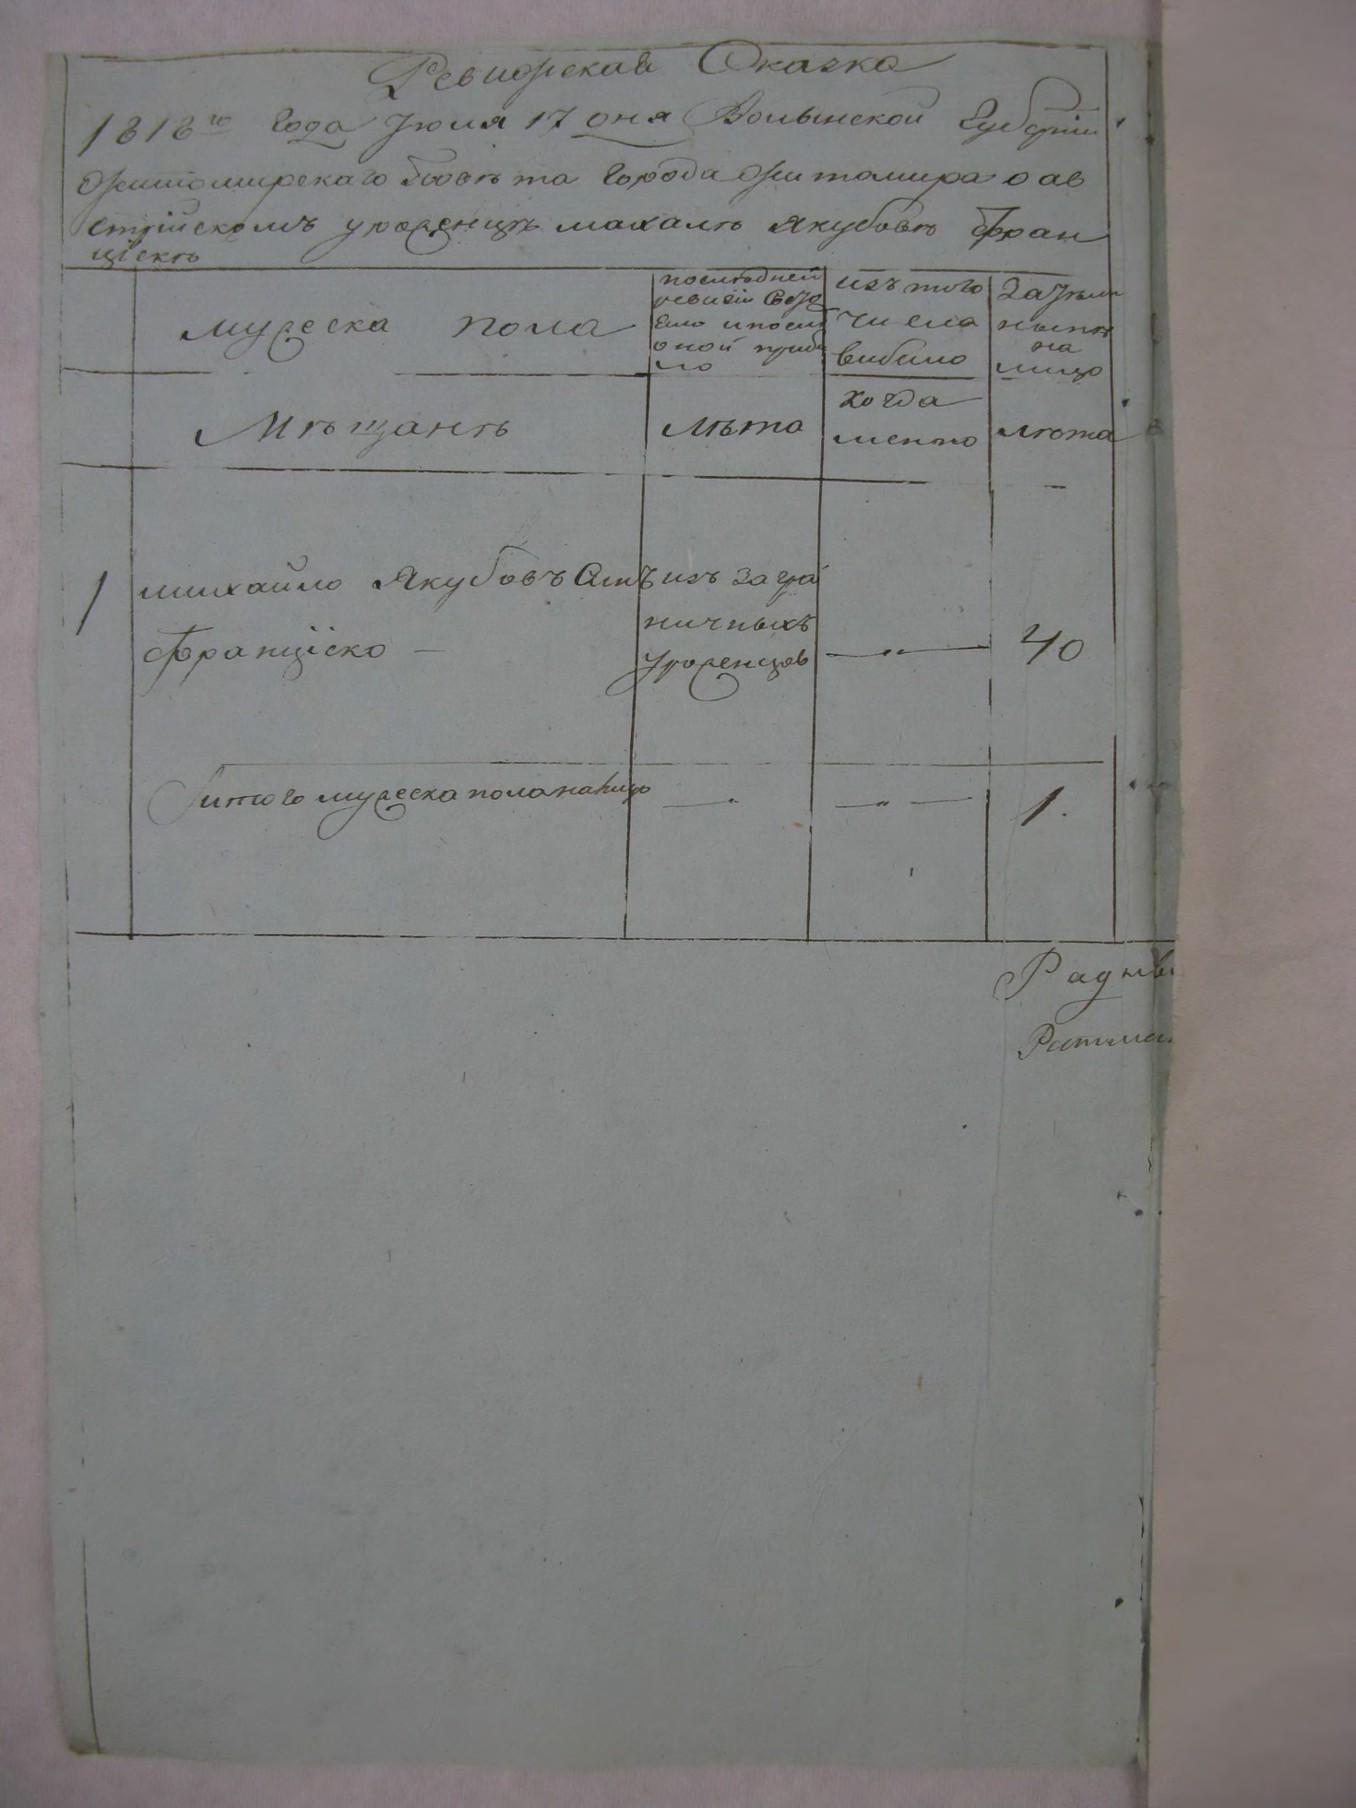 Ревизская Сказка
1818го года Июля 17 дня Волынской Губернии
Житомирского Повета города Житомира о ав
стрийскомъ уроженцѣ Михалѣ Якубовѣ Фран
цѣскѣ
мужеска пола
последней
ревизии состо
яло и после
оной прибы
ло
изъ того
числа
выбыло
затѣмъ
нынѣ
на
лицо
Мѣщанѣ
лѣта
когда
менно
лѣта
1 Михайло Якубовъ Сынъ изъ загра
ничныхъ
Францѣско — уроженцов 40
Итого мужеска пола на лицо 1.
Ратма